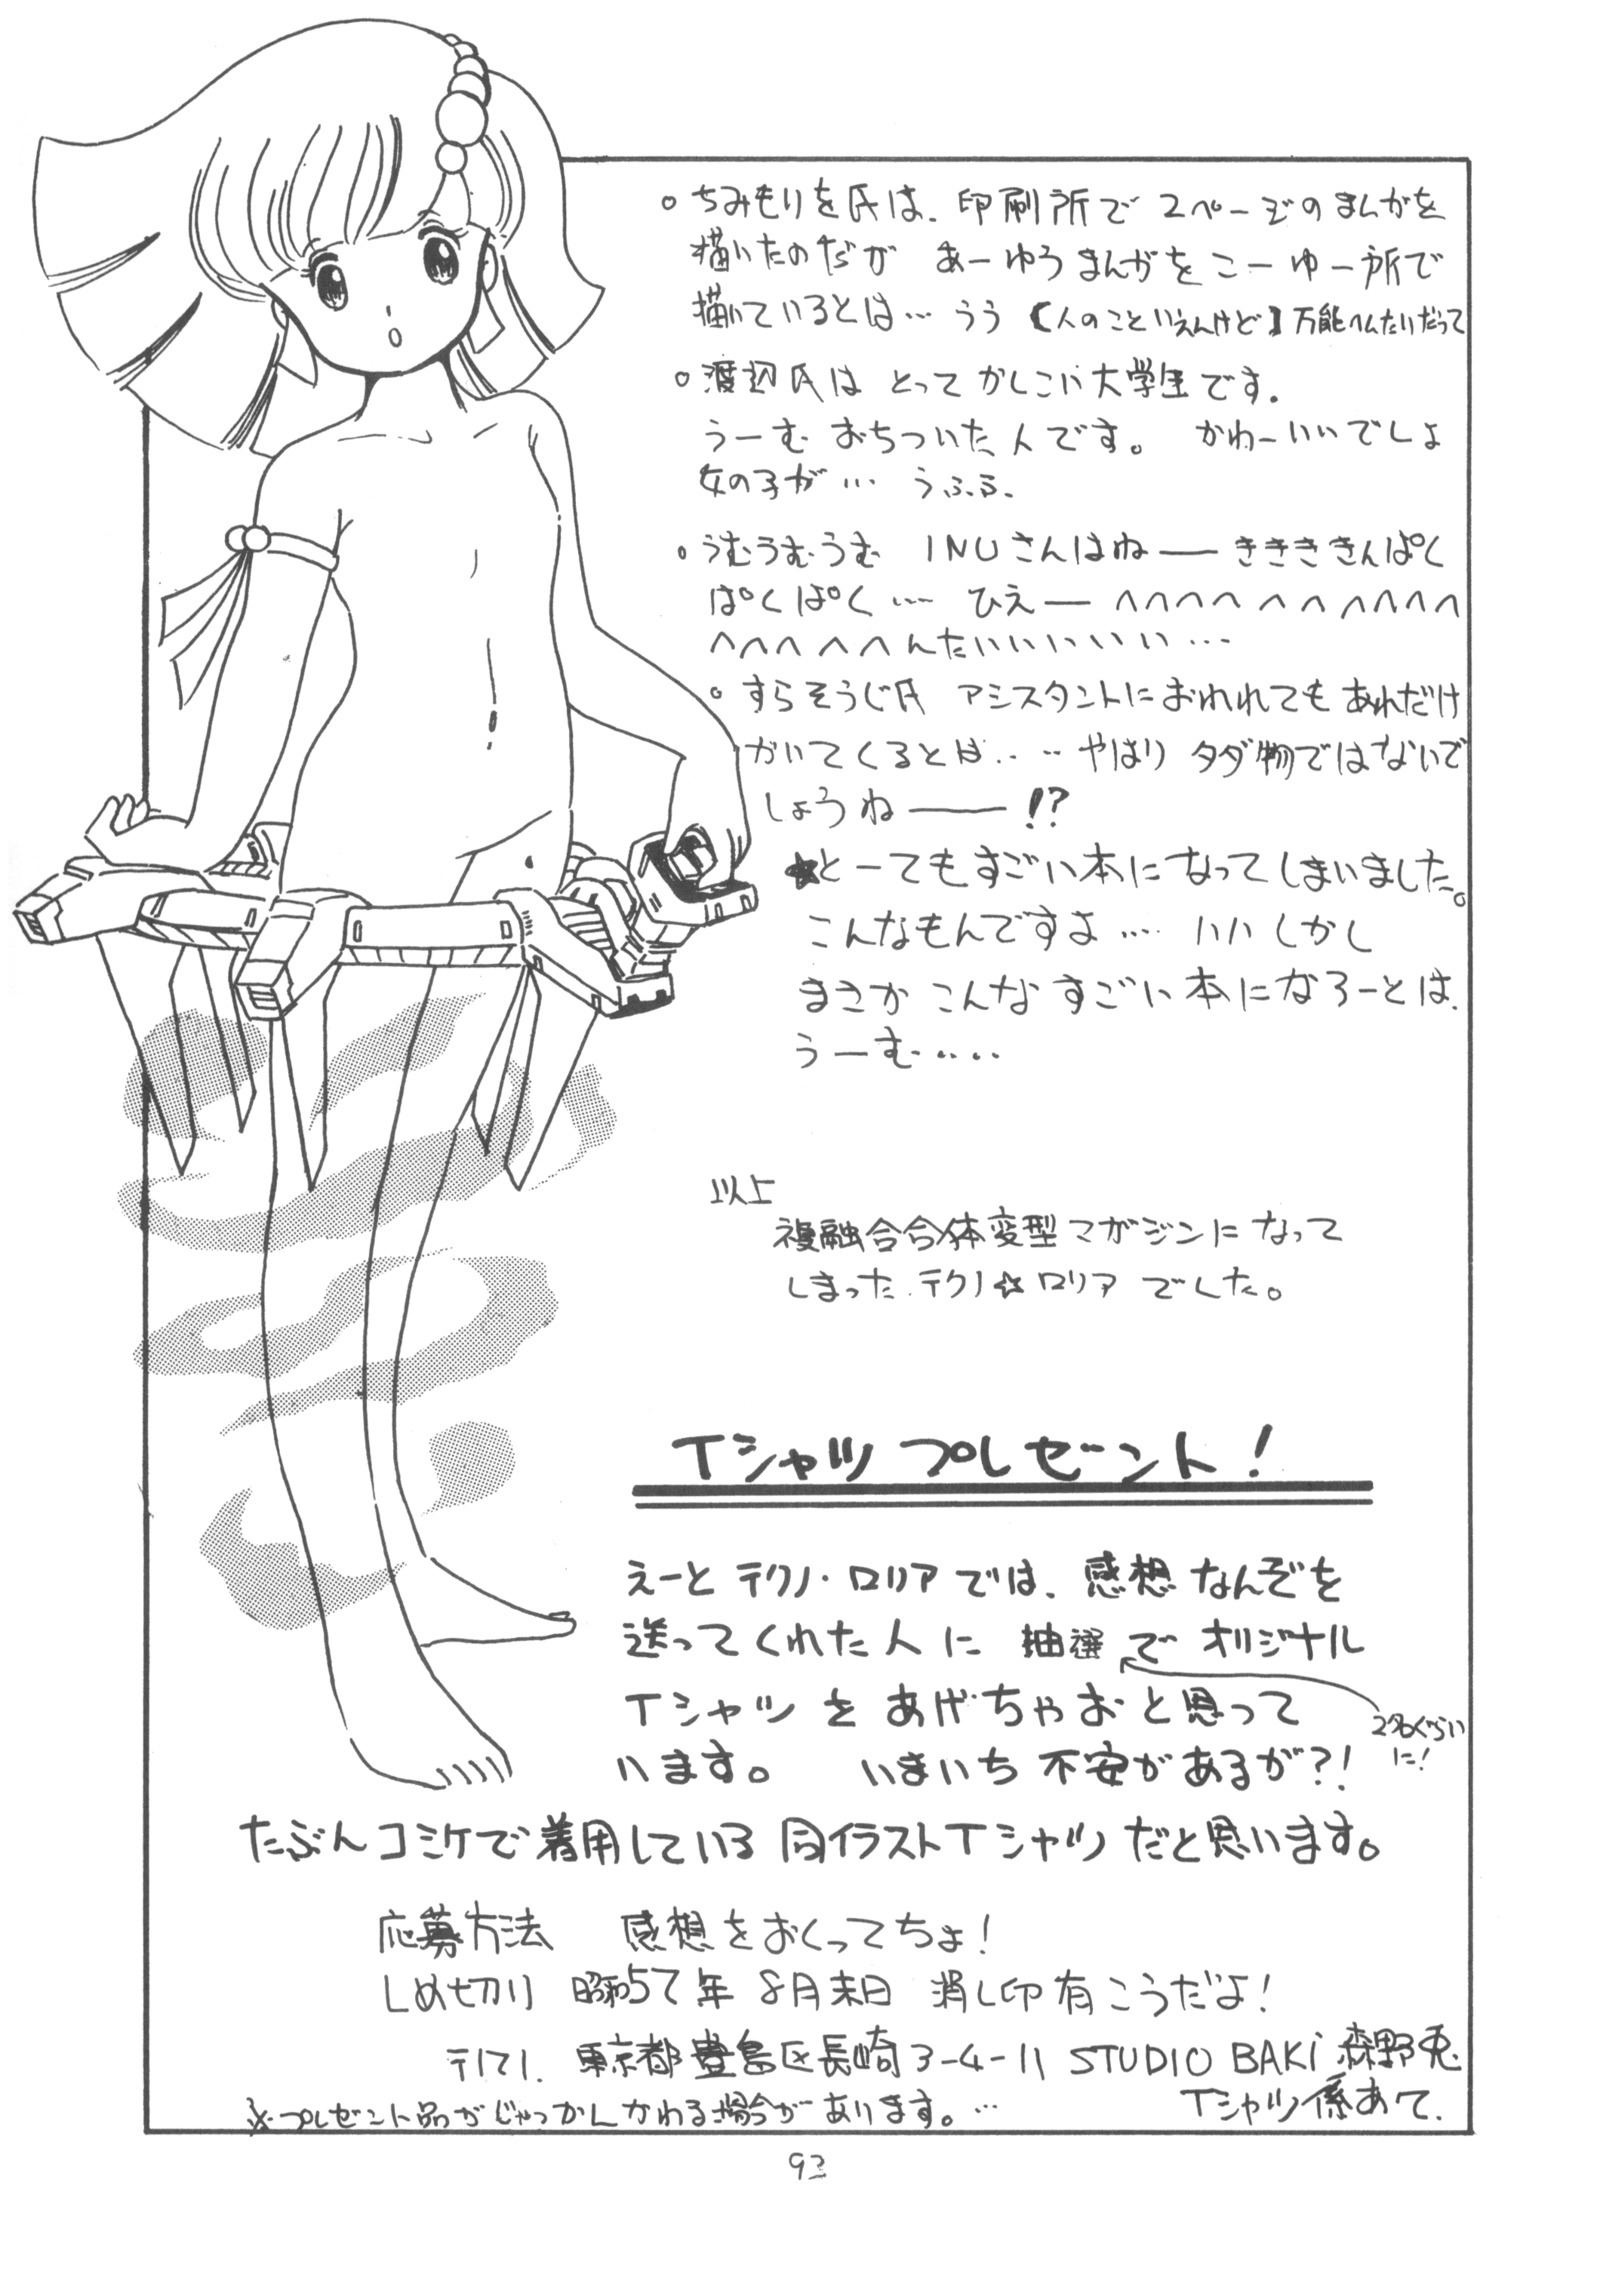 ○ちみもりを氏は、印刷所で2ページのまんがを
描いたのだが あーゆうまんがをこーゆー所で
描いているとは…うう【人のこといえんけど】万能ヘムたいだって
○渡辺氏は とってかしこい大学生です。
うーむ おちついた人です。 かわーいいでしょ
女の子が… うふる、
○うむうむうむ INUさんはねーききききんぱく
ぱくぱく… ひえーヘヘヘヘヘヘヘヘヘヘヘ
ヘヘヘヘヘヘんたいいいいいい…
○すらそうじ氏 アシスタントにおわれてもあれだけ
かいてくるとは‥‥やはりタダ物ではないで
しょうねー!?
★とーてもすごい本になってしまいました。
こんなもんですよ… ハハしかし
まさかこんなすごい本になろーとは、
うーむ‥‥
以上
複融合合体変型マガジンになって
しまった テクノ☆ロリア でした。
Tシャツ プレゼント!
えーと テクノ・ロリアでは、感想なんぞを
送ってくれた人に 抽選で オリジナル
Tシャツを あげちゃおと思って
2名ぐらい
に!
います。 いまいち不安があるが?!
たぶんコミケで着用している同イラストTシャツだと思います。
応募方法 感想をおくってちょ!
しめ切り 昭和57年8月末日 消し印有こうだよ!
〒171. 東京都豊島区長崎3-4-11 STUDIO BAKI 森野兎
Tシャツ係あて.
※プレゼント品がじゃっかんかわる場合があります。…
93